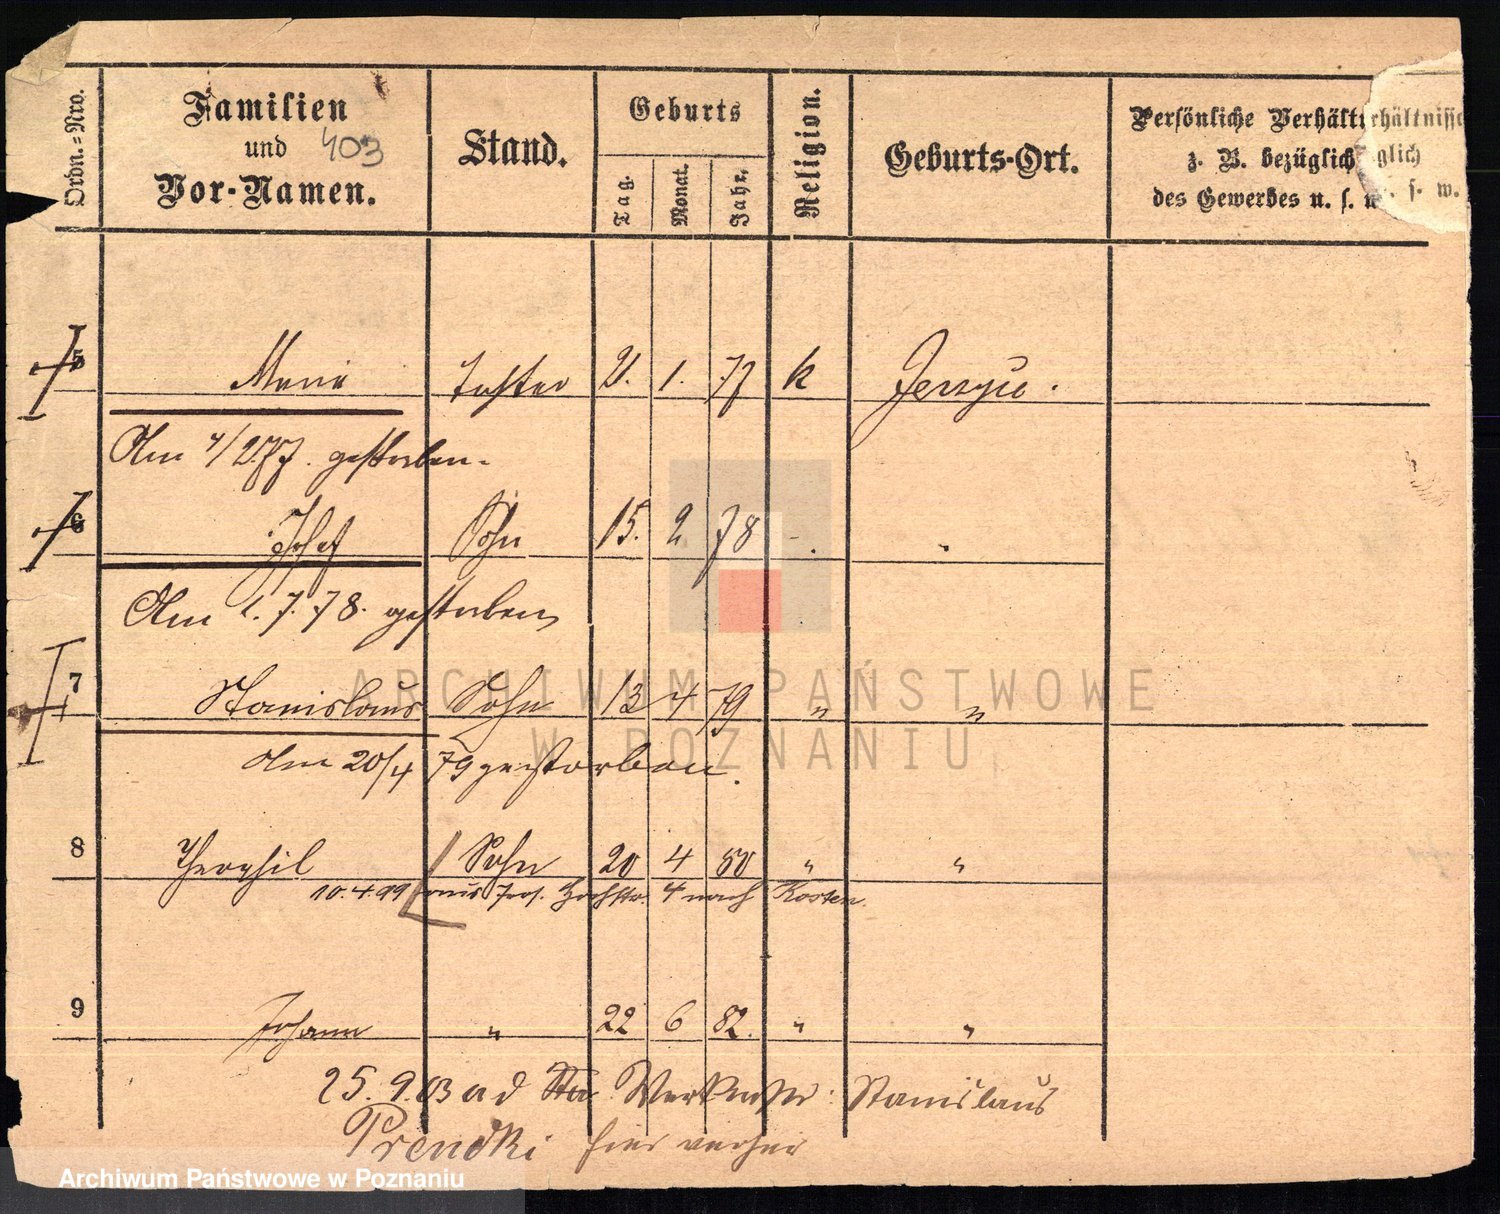 Ordn.=Nro.
Familien
und
Vor-Namen.
403
Stand.
Geburts
Tag.
Monat.
Jahr.
Religion.
Geburts-Ort.
Persönliche Verhältnisse
z. B. bezüglich
des Gewerbes u. s. w.
5 Marie Tochter 21. 1. 77 k Jerzyce.
Am 4/2.77. gestorben.
6 Josef Sohn 15. 2 78 - . "
Am 1.7.78. gestorben
7 Stanislaus Sohn 13 4 79 " "
Am 20/4 79 gestorben.
8 Theophil Sohn 20 4 80 " "
10.4.99 aus Jers. 4 nach Kosten.
9 Johann " 22 6 82. " "
25.9.03 ad Stanislaus
Prendki hier
ARCHIWUM PAŃSTWOWE
W POZNANIU
Archiwum Państwowe w Poznaniu